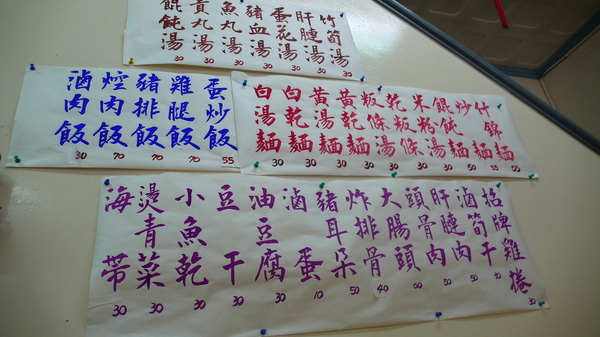 竹筍湯 30
肝腱湯 30
蛋花湯 30
豬血湯 30
魚丸湯 30
貢丸湯 30
餛飩湯 30
什錦麵 55
炒麵 55
餛飩麵 50
米粉湯 30
乾粄條 30
粄條湯 30
黃乾麵 30
黃湯麵 30
白乾麵 30
白湯麵 30
蛋炒飯 55
雞腿飯 70
豬排飯 70
焢肉飯 70
滷肉飯 30
招牌雞捲 30
滷筍干 50
肝腱肉 50
頭骨肉 50
大腸頭 50
炸排骨 40
豬耳朵 50
滷蛋 10
油豆腐 30
豆干 30
小魚乾 30
燙青菜 30
海帶 30